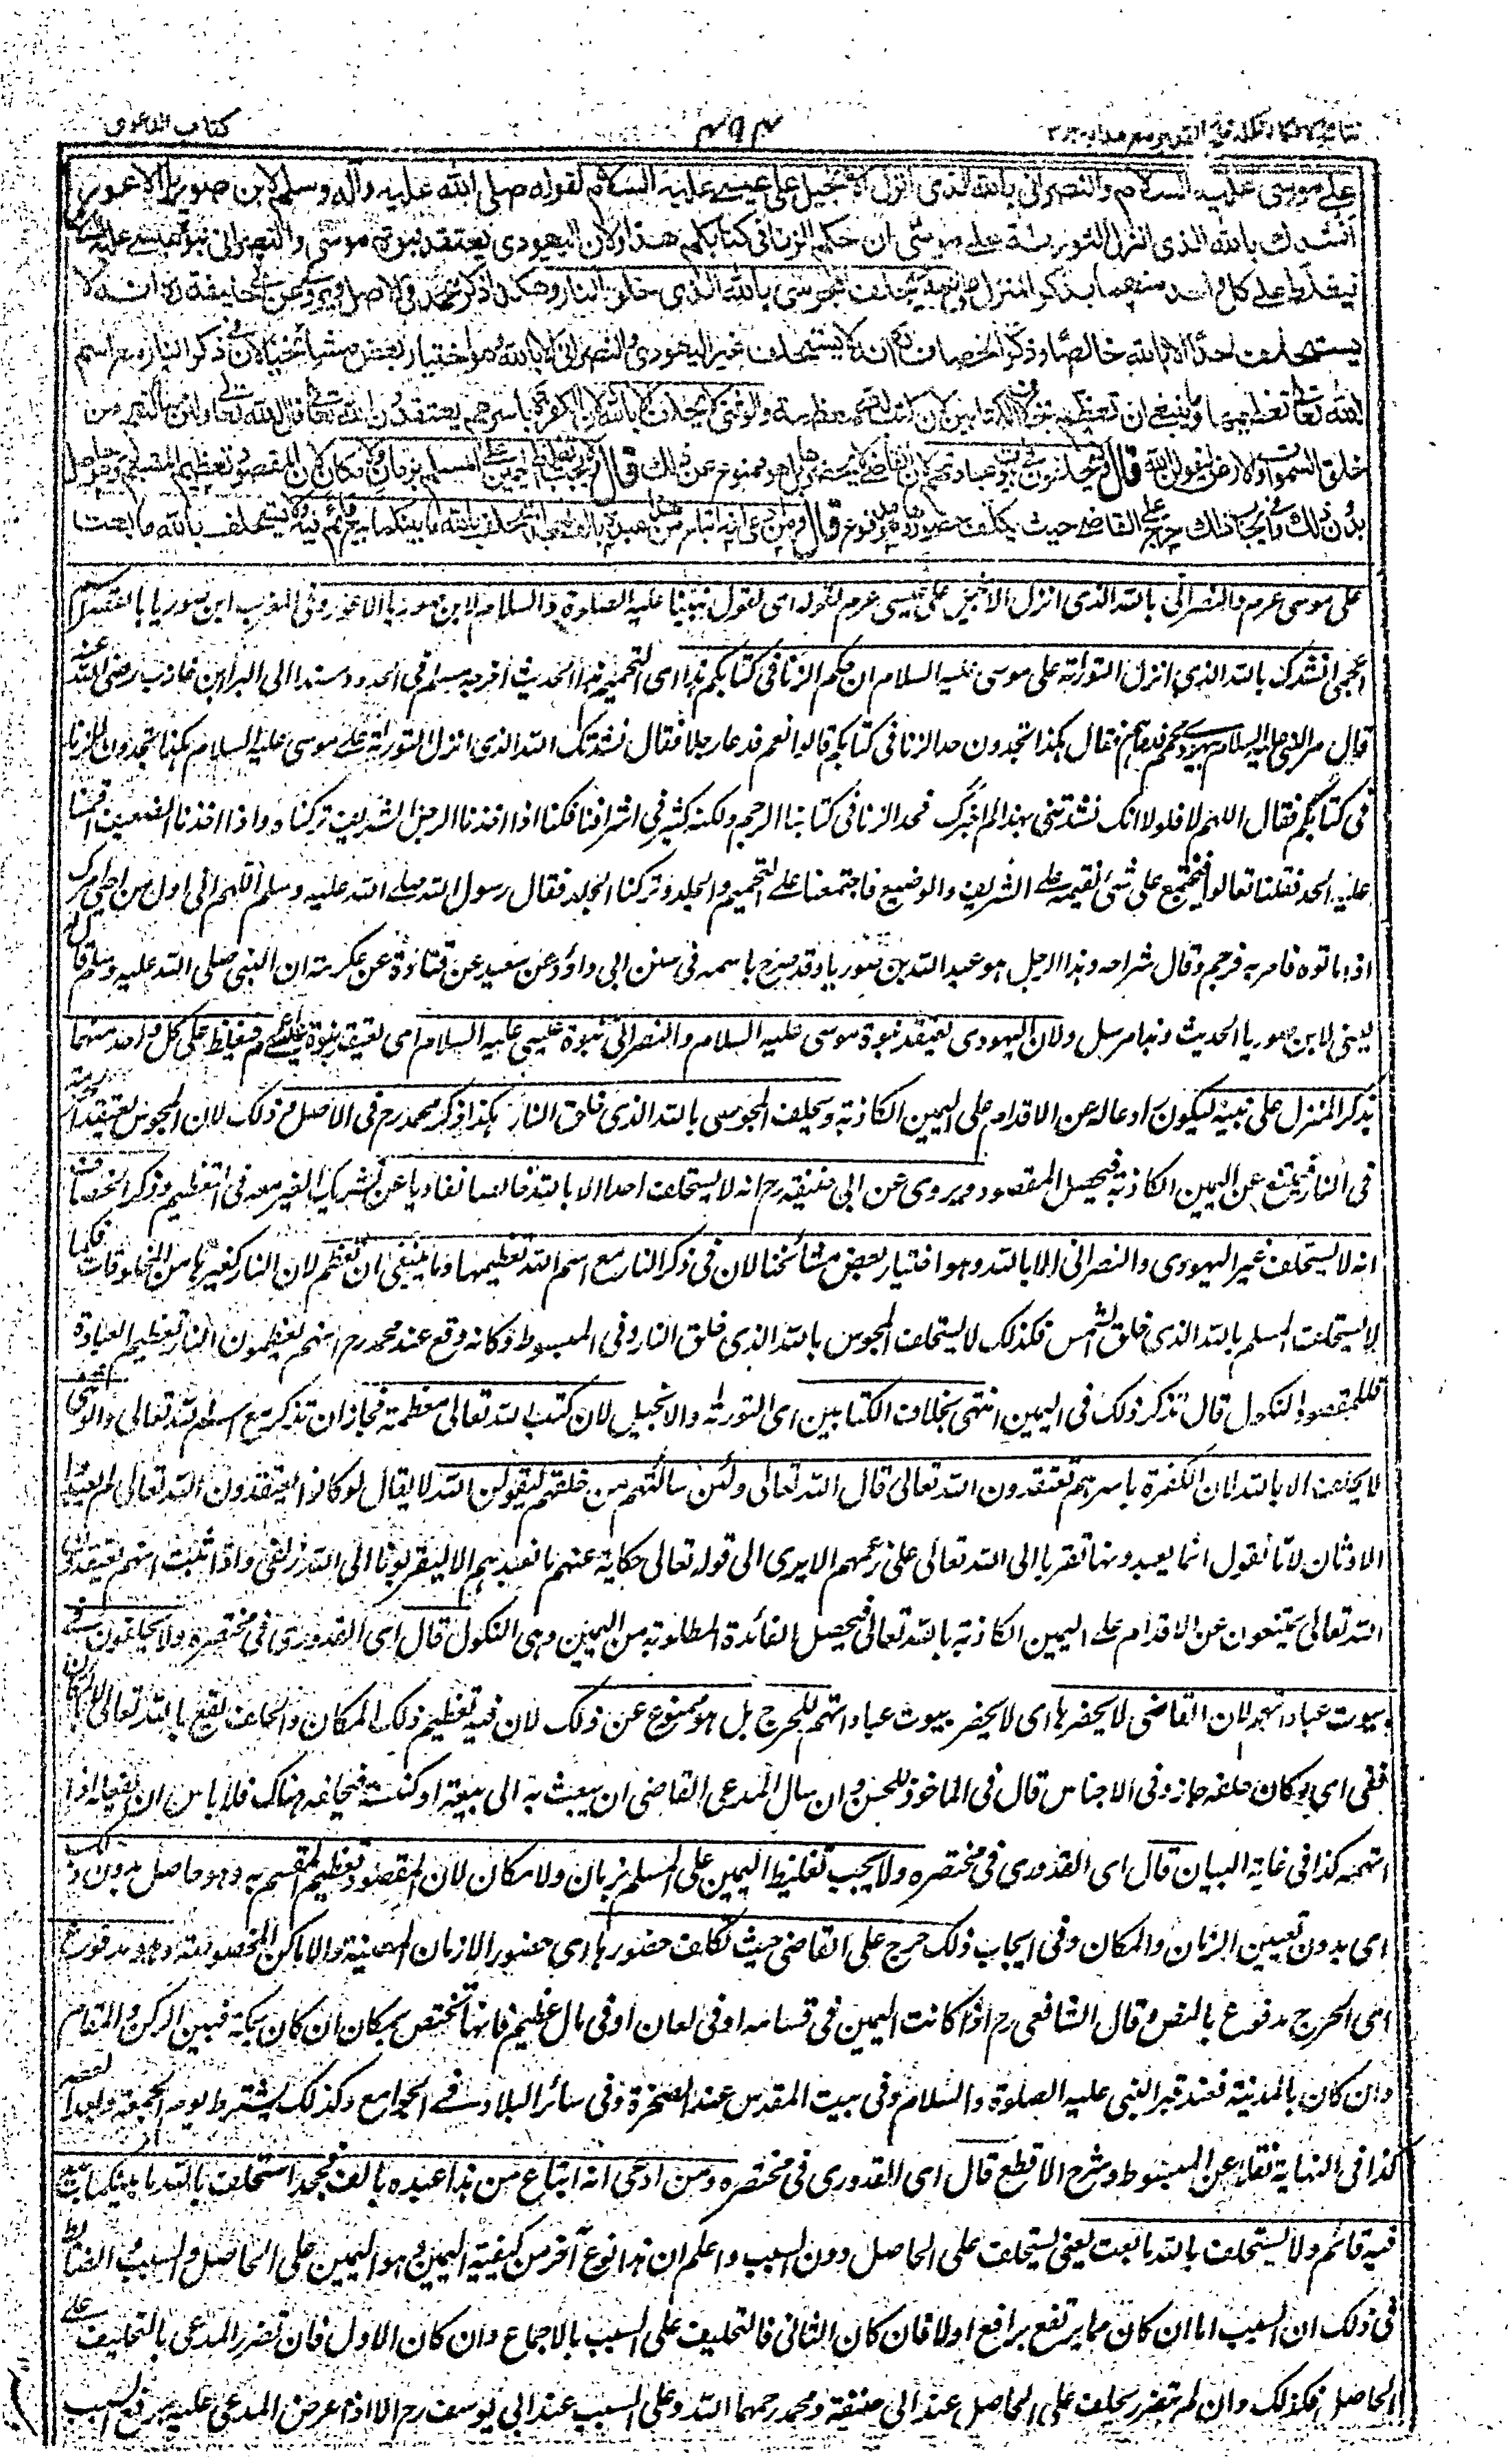 كتاب الدعوى
على موسى عليه السلام والنصرانى بالله الذى انزل الانجيل على عيسى عليه السلام لقوله صلى الله عليه وآله وسلم لابن صوريا الاعور
انشدك بالله الذى انزل التورىة على موسى ان حكم الزنا فى كتابكم هذا ولان اليهودى يعتقد نبوة موسى والنصرانى نبوة عيسى عليه
فيغلظ على كل واحد منهما بذكر المنزل على نبيه ويحلف المجوسى بالله الذى خلق النار وهكذا ذكر محمد فى الاصل ويروى عن ابى حنيفة رح انه لا
يستحلف احدا الا بالله خالصا وذكر الخصاف رح انه لا يستحلف غير اليهودى والنصرانى الا بالله وهو اختيار بعض مشائخنا لان فى ذكر النار مع اسم
الله تعالى تعظيمها وما ينبغى ان تعظم بخلاف الكتابين لان كتب الله معظمة والوثنى لا يحلف الا بالله لان الكفرة باسرهم يعتقدون الله تعالى قال الله تعالى ولئن سالتهم من
خلق السموات والارض ليقولن الله قال ولا يحلفون فى بيوت عبادتهم لان القاضى لا يحضرها بل هو ممنوع عن ذلك قال ولا يجب تغليظ اليمين على المسلم بزمان ولا مكان لان المقصود تعظيم المقسم به وهو حاصل
بدون ذلك وفى ايجاب ذلك حرج على القاضى حيث يكلف حضورها وهو مدفوع قال ومن ادعى انه ابتاع من هذا عبده بالف فجحد استحلف بالله ما بينكما بيع قائم فيه ولا يستحلف بالله ما بعت
على موسى عرم والنصرانى بالله الذى انزل الانجيل على عيسى عرم لقوله اى لقول نبينا عليه الصلوة والسلام لابن صوريا الاعور وفى المغرب ابن صوريا بالقصر اسم
اعجمى انشدك بالله الذى انزل التوراة على موسى عليه السلام ان حكم الزنا فى كتابكم هذا اى التحميم هذا الحديث اخرجه مسلم فى الحدود مسندا الى البراء بن عازب رضى الله عنه
قال مر النبى عليه السلام بيهودى محمم فدعاهم فقال هكذا تجدون حد الزنا فى كتابكم قالوا نعم فدعا رجلا فقال نشدتك الله الذى انزل التوراة على موسى عليه السلام هكذا تجدون حد الزنا
فى كتابكم فقال اللهم لا فلولا انك نشدتنى بهذا لم اخبرك نجد الزنا فى كتابنا الرجم ولكنه كثر فى اشرافنا فكنا اذا اخذنا الرجل الشريف تركناه واذا اخذنا الضعيف اقمنا
عليه الحد فقلنا تعالوا فنجتمع على شئ نقيمه على الشريف والوضيع فاجتمعنا على التحميم والجلد وتركنا الجلد فقال رسول الله صلى الله عليه وسلم اللهم انى اول من احيى امرك
اذ اماتوه فامر به فرجم وقال شراحه وهذا الرجل هو عبد الله بن صوريا وقد صرح باسمه فى سنن ابى داؤد عن سعيد عن قتادة عن عكرمة ان النبى صلى الله عليه وسلم قال له
يعنى لابن صوريا الحديث وهذا مرسل ولان اليهودى يعتقد نبوة موسى عليه السلام والنصرانى نبوة عيسى عليه السلام اى يعتقد نبوة عيسى عرم فيغلظ على كل واحد منهما
بذكر المنزل على نبيه ليكون رادعا له عن الاقدام على اليمين الكاذبة ويحلف المجوسى بالله الذى خلق النار هكذا ذكر محمد رح فى الاصل وذلك لان المجوس يعتقد الحرمة
فى النار فيمتنع عن اليمين الكاذبة فيحصل المقصود ويروى عن ابى حنيفة رح انه لا يستحلف احدا الا بالله خالصا تفاديا عن تشريك الغير معه فى التعظيم وذكر الخصاف
انه لا يستحلف غير اليهودى والنصرانى الا بالله وهو اختيار بعض مشائخنا لان فى ذكر النار مع اسم الله تعظيمها وما ينبغى ان تعظم لان النار كغيرها من المخلوقات فكما
لا يستحلف المسلم بالله الذى خلق الشمس فكذلك لا يستحلف المجوس بالله الذى خلق النار وفى المبسوط وكانه وقع عند محمد رح انهم يعظمون النار تعظيم العبادة
فللمقصود النكول قال تذكر ذلك فى اليمين انتهى بخلاف الكتابين اى التوراة والانجيل لان كتب الله تعالى معظمة فجاز ان تذكر مع اسم الله تعالى والوثنى
لا يحلف الا بالله لان الكفرة باسرهم تعتقدون الله تعالى قال الله تعالى ولئن سالتهم من خلقهم ليقولن الله لا يقال لو كانوا يعتقدون الله تعالى لم يعبدوا
الاوثان لانا نقول انما يعبدونها تقربا الى الله تعالى على زعمهم الا يرى الى قوله تعالى حكاية عنهم ما نعبدهم الا ليقربونا الى الله زلفى واذا ثبت انهم يعتقدون
الله تعالى يمتنعون عن الاقدام على اليمين الكاذبة بالله تعالى فيحصل الفائدة المطلوبة من اليمين وهى النكول قال اى القدورى فى مختصره ولا يحلفون فى
بيوت عباداتهم لان القاضى لا يحضرها اى لا يحضر بيوت عباداتهم للحرج بل هو ممنوع عن ذلك لان فيه تعظيم ذلك المكان والحلف يقع بالله تعالى لا بالمكان
ففى اى مكان حلفه جاز وفى الاجناس قال فى الماخوذ للحسن وان سال المدعى القاضى ان يبعث به الى بيعة او كنيسة فيحلفه هناك فلا باس ان يفعله اذا
اتهمه كذا فى غاية البيان قال اى القدورى فى مختصره ولا يجب تغليظ اليمين على المسلم بزمان ولا مكان لان المقصود تعظيم المقسم به وهو حاصل بدون ذلك
اى بدون تعيين الزمان والمكان وفى ايجاب ذلك حرج على القاضى حيث تكلف حضورها اى حضور الازمان المعينة والاماكن المخصوصة وهو مدفوع
اى الحرج مدفوع بالنص وقال الشافعى رح اذا كانت اليمين فى قسامة او فى لعان او فى مال عظيم فانها تختص بمكان ان كان بمكة فبين الركن والمقام
وان كان بالمدينة فعند قبر النبى عليه الصلوة والسلام وفى بيت المقدس عند الصخرة وفى سائر البلاد فى الجوامع وكذلك يشترط يوم الجمعة وبعد العصر
كذا فى النهاية نقلا عن المبسوط وشرح الاقطع قال اى القدورى فى مختصره ومن ادعى انه ابتاع من هذا عبده بالف فجحد استحلف بالله ما بينكما بيع
فيه قائم ولا يستحلف بالله ما بعت يعنى يستحلف على الحاصل دون السبب واعلم ان هذا نوع آخر من كيفية اليمين وهو اليمين على الحاصل والسبب والضابط
فى ذلك ان السبب اما ان كان مما يرتفع برافع اولا فان كان الثانى فالتحليف على السبب بالاجماع وان كان الاول فان تضرر المدعى بالتحليف على
الحاصل فكذلك وان لم يتضرر يحلف على الحاصل عند ابى حنيفة ومحمد رحمهما الله وعلى السبب عند ابى يوسف رح الا اذا عرض المدعى عليه برفع السبب